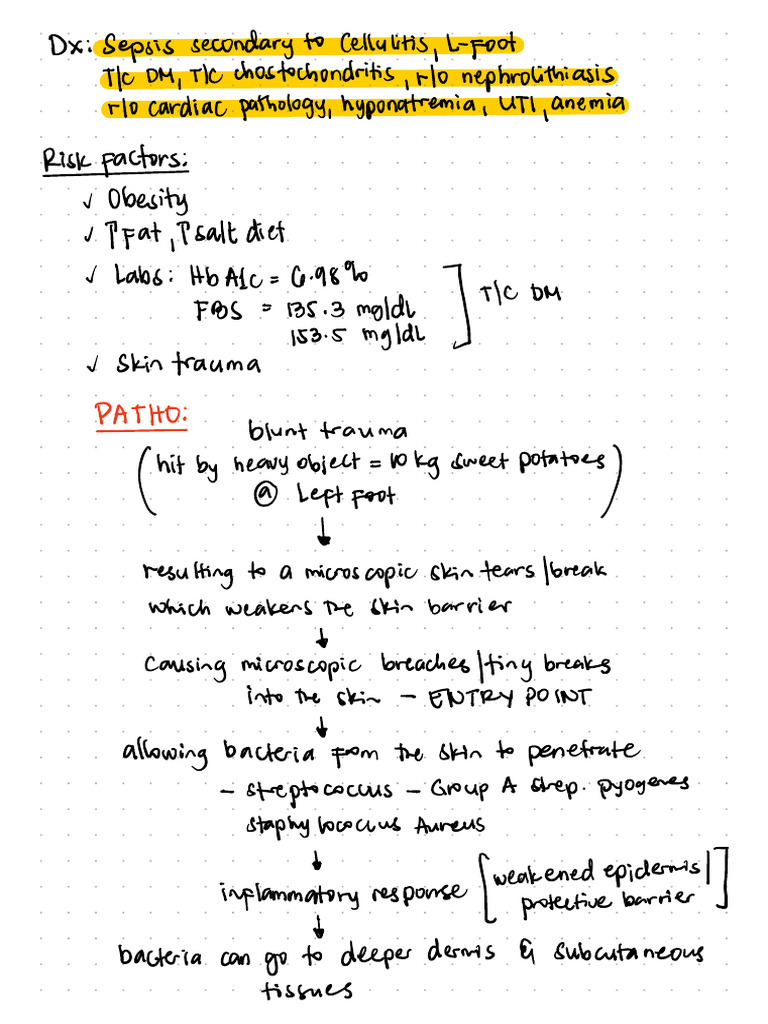 Dx: Sepsis secondary to Cellulitis, L-Foot
T/C DM, T/C chostochondritis, r/o nephrolithiasis
r/o cardiac pathology, hyponatremia, UTI, anemia
Risk factors:
✓ Obesity
✓ ↑Fat, ↑salt diet
✓ Labs: HbA1c = 6.98%
FBS = 135.3 mg/dL
153.5 mg/dL
] T/C DM
✓ Skin trauma
PATHO:
blunt trauma
(hit by heavy object = 10 kg sweet potatoes
@ Left Foot)
↓
resulting to a microscopic skin tears/break
which weakens the skin barrier
↓
causing microscopic breaches/tiny breaks
into the skin - ENTRY POINT
↓
allowing bacteria from the skin to penetrate
- streptococcus - Group A strep. pyogenes
staphylococcus Aureus
↓
inflammatory response [weakened epidermis/
protective barrier]
↓
bacteria can go to deeper dermis & subcutaneous
tissues